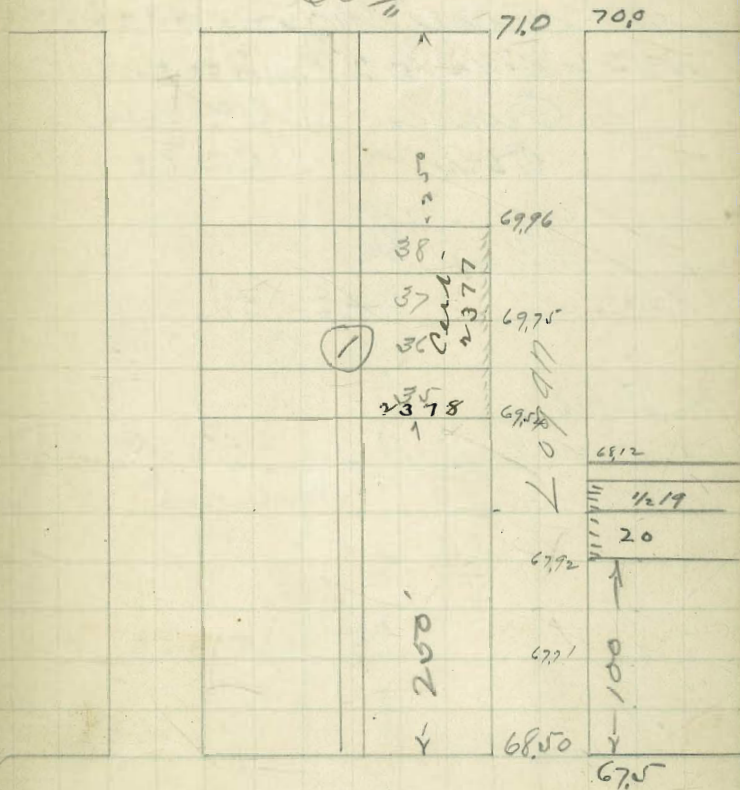 71.0 70.0
69.96
38
37
69.75
36
Cert.
2377
1
35
2378
69.54
Logan
68.12
1/2 19
20
67.92
67.71
250'
100
68.50
67.5